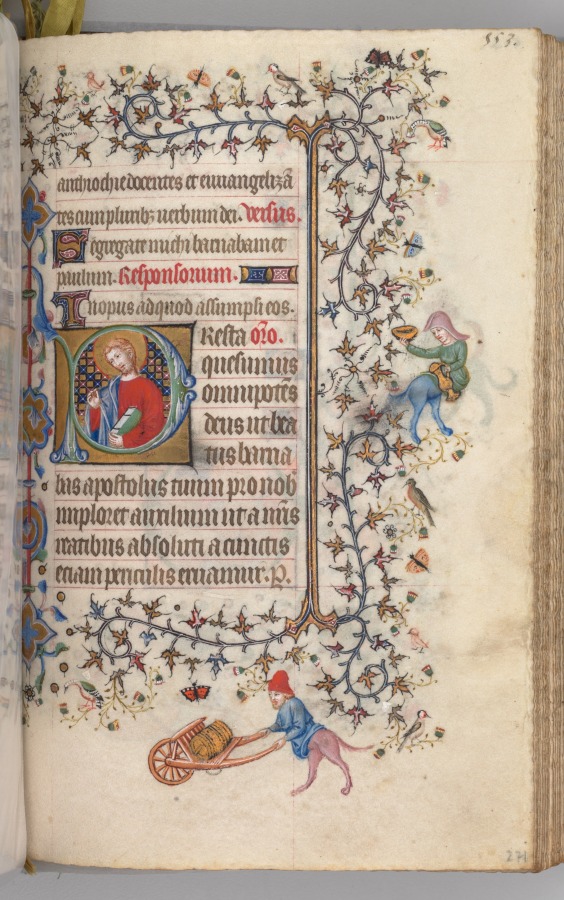 353.
anthiochie docentes et euuangelizã
tes cum pluribꝫ uerbum dei. Versus.
Segregate michi barnabam et
paulum. Responsorium.
In opus ad quod assumpsi eos.
Presta oro.
quesumus
omnipotẽs
deus ut bea
tus barna
bas apostolus tuum pro nob
imploret auxilium ut a nr̃is
reatibus absoluti a cunctis
etiam periculis eruamur. P.
271